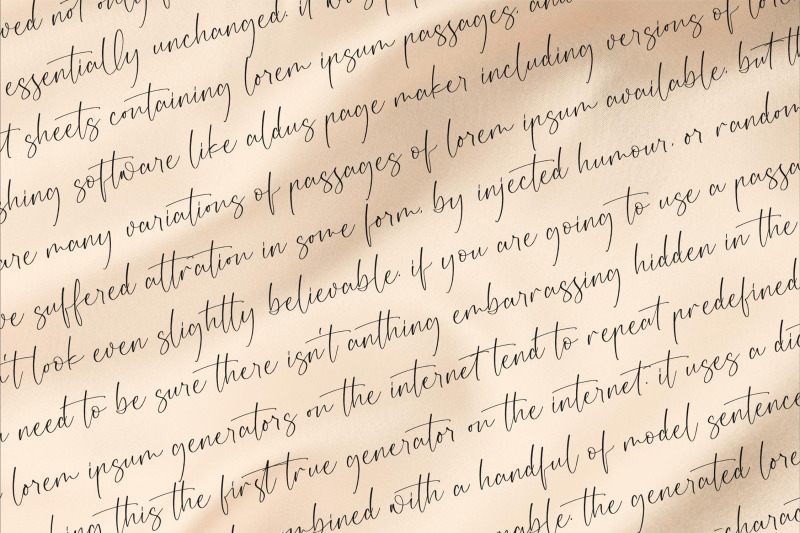 ved not only
essentially unchanged. it was
t sheets containing lorem ipsum passages. and
shing software like aldus page maker including versions of lore
are many variations of passages of lorem ipsum available. but th
ve suffered attration in some form. by injected humour. or random
n't look even slightlly believable. if you are going to use a passa
u need to be sure there isn't anthing embarrassing hidden in the
lorem ipsum generators on the internet tend to repeat predefined
king this the first true generator on the internet. it uses a dic
mbined with a handful of model sentence
nable. the generated lore
charac